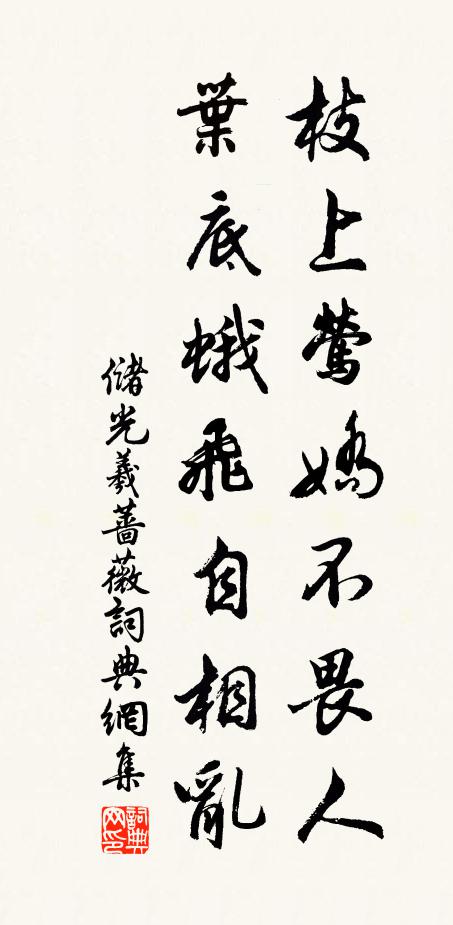 枝上鶯嬌不畏人
葉底蛾飛自相亂
儲光羲薔薇詞典網集
詞典网印